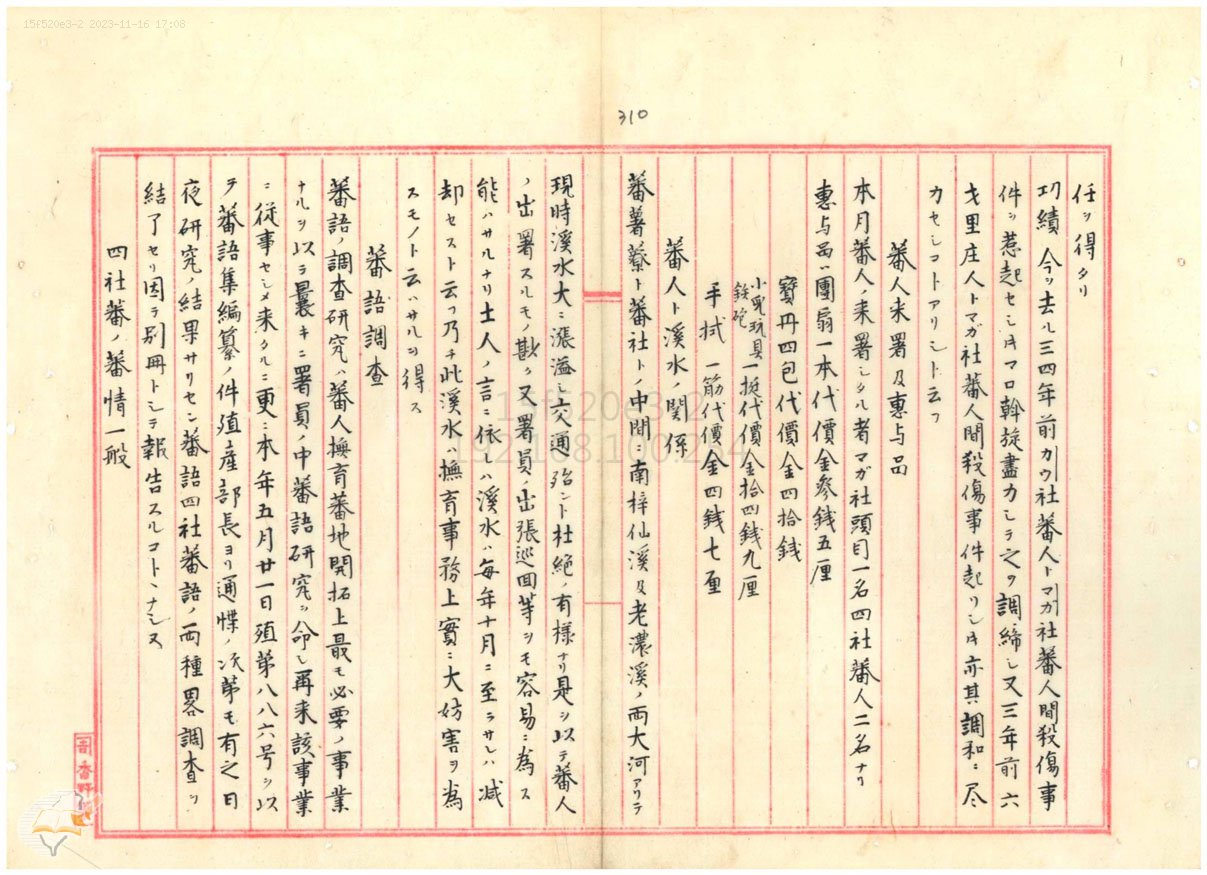 15f520e3-2 2023-11-16 17:08
310
任ヲ得タリ
功績 今ヲ去ル三四年前カウ社蕃人トマガ社蕃人間殺傷事
件ヲ惹起セシ時マロ斡旋盡力シテ之ヲ調締シ又三年前六
戈里庄人トマガ社蕃人間殺傷事件起リシ時亦其調和ニ尽
カセシコトアリシト云フ
蕃人来署及惠与品
本月蕃人ノ来署シタル者マガ社頭目一名四社蕃人二名ナリ
惠与品ハ團扇一本代價金參銭五厘
寶丹四包代價金四拾銭
小児玩具鉄砲一挺代價金拾四銭九厘
手拭一筋代價金四銭七厘
蕃人ト溪水ノ関係
蕃薯藔ト蕃社トノ中間ニ南梓仙溪及老濃溪ノ両大河アリテ
現時溪水大ニ漲溢シ交通殆ント杜絶ノ有様ナリ是ヲ以テ蕃人
ノ出署スルモノ尠ク又署員ノ出張巡回等ヲモ容易ニ為ス
能ハサルナリ土人ノ言ニ依レハ溪水ハ毎年十月ニ至ラサレハ減
却セスト云フ乃チ此溪水ハ撫育事務上實ニ大妨害ヲ為
スモノト云ハサルヲ得ス
蕃語調査
蕃語ノ調査研究ハ蕃人撫育蕃地開拓上最モ必要ノ事業
ナルヲ以テ曩キニ署員ノ中蕃語研究ヲ命シ再来該事業
ニ従事セシメ来タルニ更ニ本年五月廿一日殖第八八六号ヲ以
テ蕃語集編纂ノ件殖産部長ヨリ通牒ノ次第モ有之日
夜研究ノ結果サリセン蕃語四社蕃語ノ両種畧調査ヲ
結了セリ因テ別冊トシテ報告スルコトヽナシヌ
四社蕃ノ蕃情一般
15f520e3-2
192.168.100.254